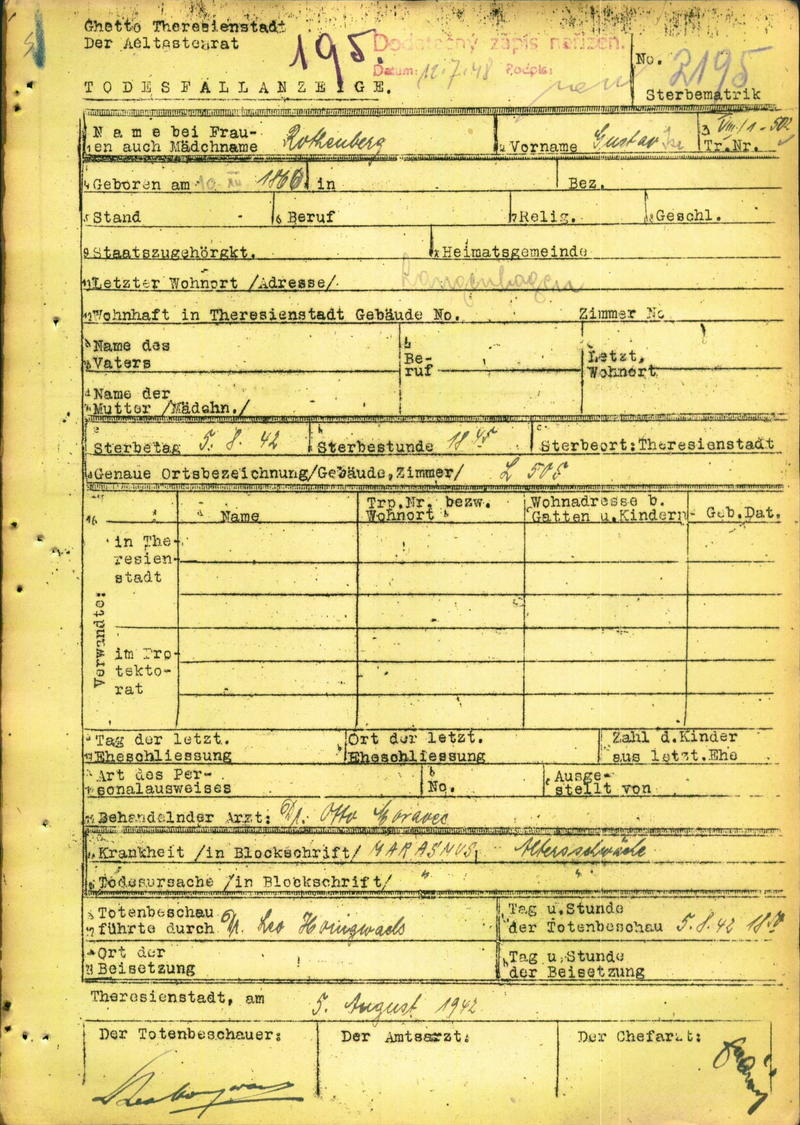 Ghetto Theresienstadt
Der Aeltestenrat
195.
Dodatečný zápis nařízen.
Datum: 12.7.48 Podpis:
No. 2195
Sterbematrik
TODESFALLANZEIGE.
Name bei Frau-
en auch Mädchname Rothenberg
Vorname Gustav
3 VIII/1-502
Tr.Nr.
Geboren am 10 XII 1866 in
Bez.
Stand
6 Beruf
7 Relig.
8 Geschl.
9 Staatszugehörgkt.
Heimatsgemeinde
Letzter Wohnort /Adresse/ Langenhagen
Wohnhaft in Theresienstadt Gebäude No.
Zimmer No
Name des
Vaters
Be-
ruf
Letzt.
Wohnort
Name der
Mutter /Mädchn./
Sterbetag 5. 8. 42
Sterbestunde 18 45
Sterbeort: Theresienstadt
Genaue Ortsbezeichnung/Gebäude, Zimmer/ L 505
16
Name
Trp.Nr. bezw.
Wohnort
Wohnadresse b.
Gatten u. Kindern
Geb.Dat.
Verwandte:
in The-
resien-
stadt
im Pro-
tekto-
rat
Tag der letzt.
Eheschliessung
Ort der letzt.
Eheschliessung
Zahl d.Kinder
aus letzt.Ehe
Art des Per-
sonalausweises
No.
Ausge-
stellt von
Behandelnder Arzt: Dr. Otto Moravec
Krankheit /in Blockschrift/ MARASMUS, Altersschwäche
Todesursache /in Blockschrift/ " "
Totenbeschau
führte durch Dr. Leo
Tag u.Stunde
der Totenbeschau 5.8.42 18.
Ort der
Beisetzung
Tag u.Stunde
der Beisetzung
Theresienstadt, am 5. August 1942
Der Totenbeschauer:
Der Amtsarzt:
Der Chefarzt: